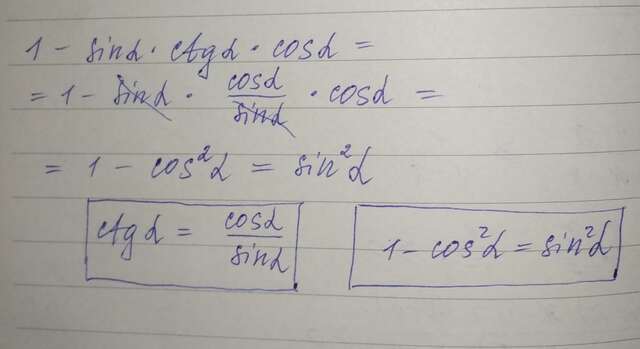 1 - sinα · ctgα · cosα =
= 1 - sinα · cosα/sinα · cosα =
= 1 - cos²α = sin²α
ctgα = cosα/sinα
1 - cos²α = sin²α